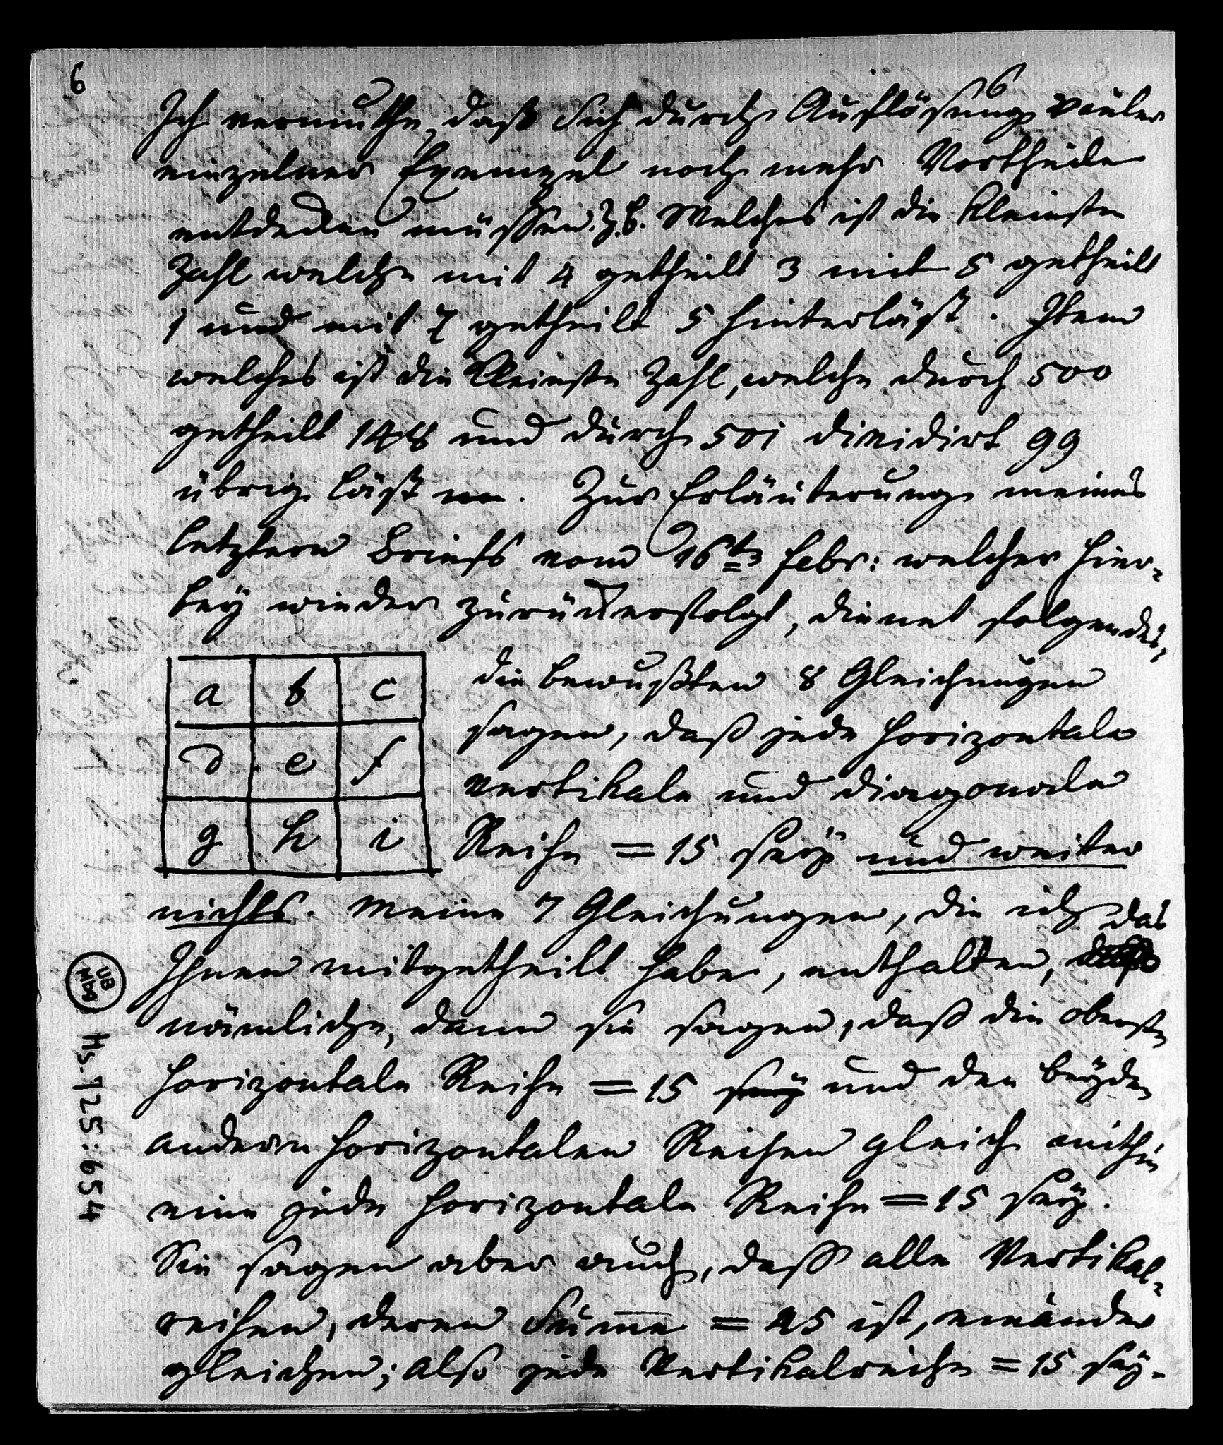 6
6
Ich vermuthe, daß sich durch Auflösung vieler
einzelner Exempel noch mehr Vortheile
entdecken müssen. z.b. Welches ist die kleinste
Zahl welche mit 4 getheilt 3 mit 5 getheilt
1 und mit 7 getheilt 5 hinterläst. Item
welches ist die kleinste Zahl, welche durch 500
getheilt 148 und durch 501 dividirt 99
übrig läst. Zur Erläuterung meines
letztern Briefs vom 16ten Febr: welcher hier-
bey wieder zurückerfolgt, dienet folgendes,
a b c
d e f
g h i
die bewußten 8 Gleichungen
sagen, daß jede horizontale
vertikale und diagonale
Reihe = 15 seÿ und weiter
nichts. Meine 7 Gleichungen, die ich
Ihnen mitgetheilt habe, enthalten, das
nämliche, denn sie sagen, daß die oberste
horizontale Reihe = 15 seÿ und den beÿden
andern horizontalen Reihen gleich mithin
eine jede horizontale Reihe = 15 seÿ.
Sie sagen aber auch, dass alle Vertikal-
reihen, deren Summe = 45 ist, einander
gleichen; also jede Vertikalreihe = 15 seÿ.
UB
Mbg
Hs. 725:654